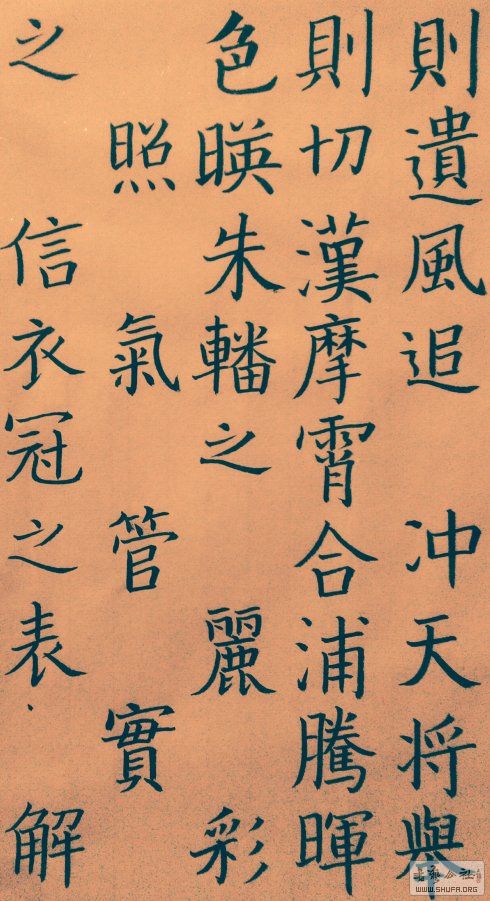 則遺風追冲天将與
則切漢摩霄合浦騰暉
色暎朱轓之麗彩
照氣管實
之信衣冠之表、解
WWW.SHUFA.ORG